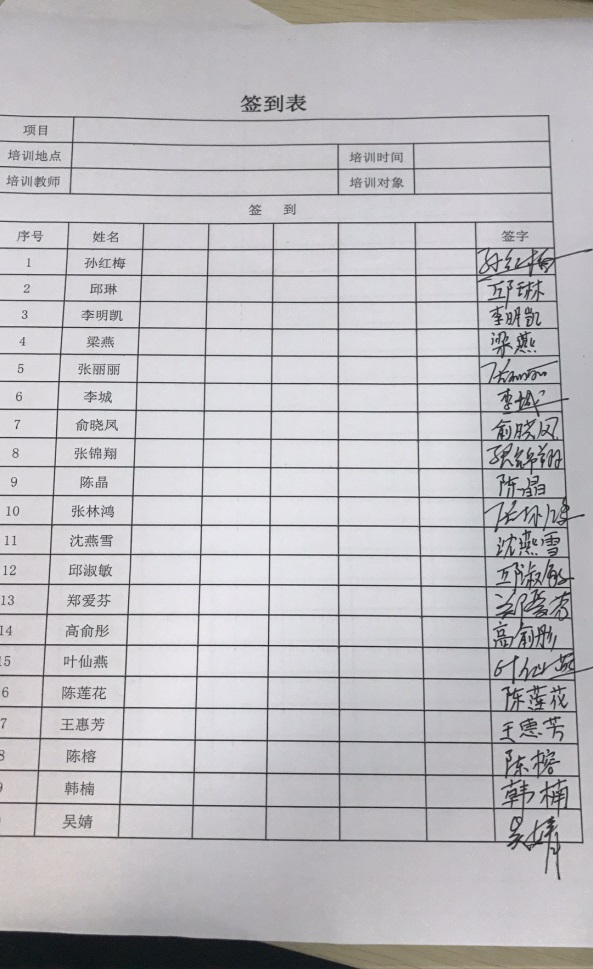 签到表
项目
培训地点 培训时间
培训教师 培训对象
签 到
序号 姓名 签字
1 孙红梅 孙红梅
2 邱琳 邱琳
3 李明凯 李明凯
4 梁燕 梁燕
5 张丽丽 张丽丽
6 李城 李城
7 俞晓凤 俞晓凤
8 张锦翔 张锦翔
9 陈晶 陈晶
10 张林鸿 张林鸿
11 沈燕雪 沈燕雪
12 邱淑敏 邱淑敏
13 郑爱芬 郑爱芬
14 高俞彤 高俞彤
15 叶仙燕 叶仙燕
6 陈莲花 陈莲花
7 王惠芳 王惠芳
8 陈榕 陈榕
9 韩楠 韩楠
吴婧 吴婧